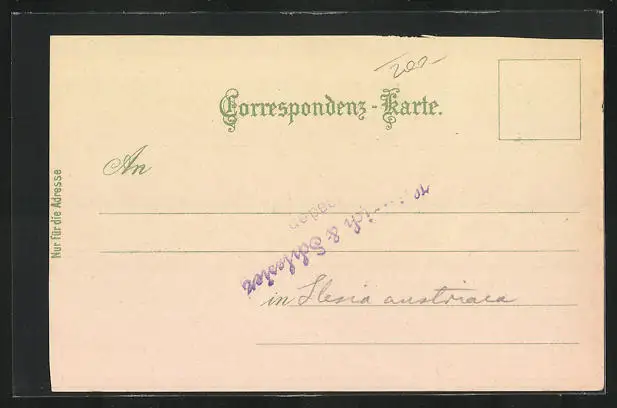 Correspondenz-Karte.
An
Nur für die Adresse
& Schlesier
in Slesia austriaca